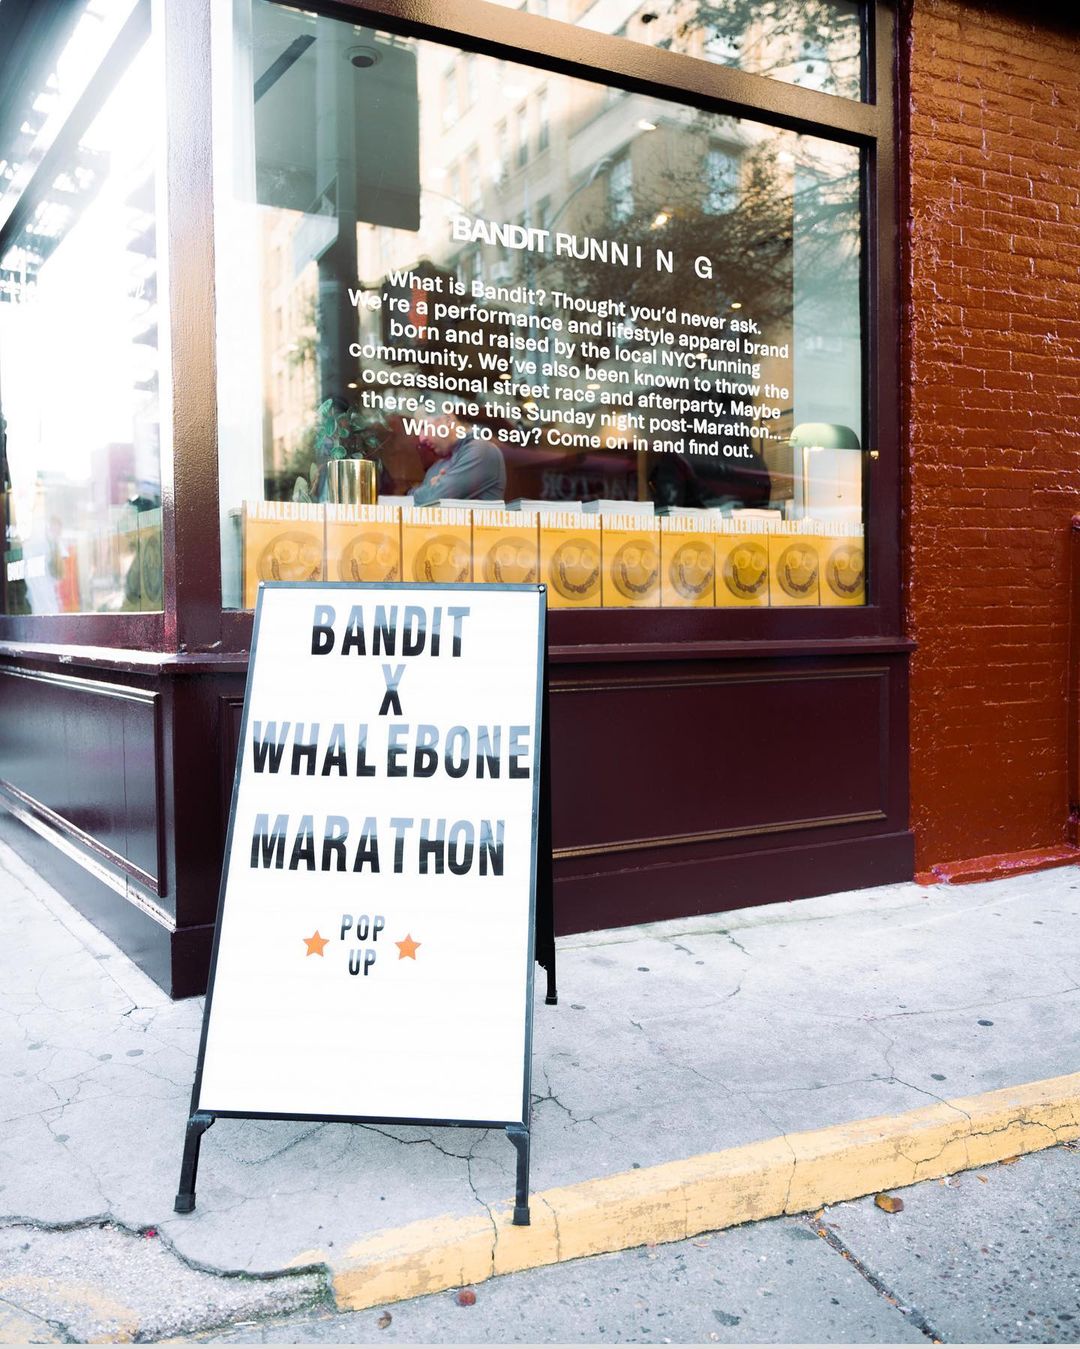 BANDIT RUNNING
What is Bandit? Thought you'd never ask.
We're a performance and lifestyle apparel brand
born and raised by the local NYC running
community. We've also been known to throw the
occassional street race and afterparty. Maybe
there's one this Sunday night post-Marathon...
Who's to say? Come on in and find out.
WHALEBONE WHALEBONE WHALEBONE WHALEBONE WHALEBONE WHALEBONE WHALEBONE WHALEBONE WHALEBONE WHALEBONE
BANDIT
X
WHALEBONE
MARATHON
POP
UP